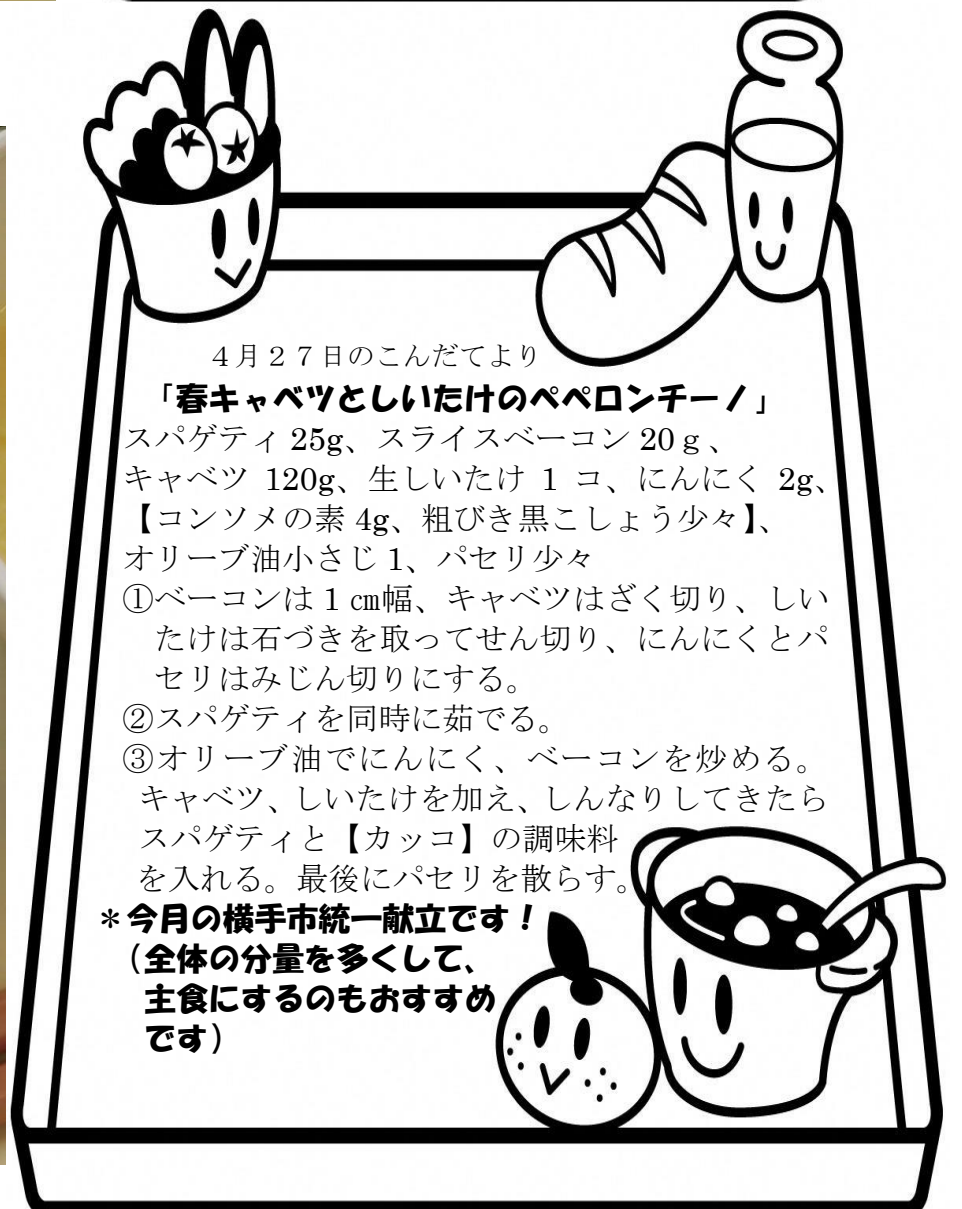 ４月２７日のこんだてより
「春キャベツとしいたけのペペロンチーノ」
スパゲティ 25g、スライスベーコン 20ｇ、
キャベツ 120g、生しいたけ 1 コ、にんにく 2g、
【コンソメの素 4g、粗びき黒こしょう少々】、
オリーブ油小さじ 1、パセリ少々
①ベーコンは 1 ㎝幅、キャベツはざく切り、しい
たけは石づきを取ってせん切り、にんにくとパ
セリはみじん切りにする。
②スパゲティを同時に茹でる。
③オリーブ油でにんにく、ベーコンを炒める。
キャベツ、しいたけを加え、しんなりしてきたら
スパゲティと【カッコ】の調味料
を入れる。最後にパセリを散らす。
＊今月の横手市統一献立です！
（全体の分量を多くして、
主食にするのもおすすめ
です）